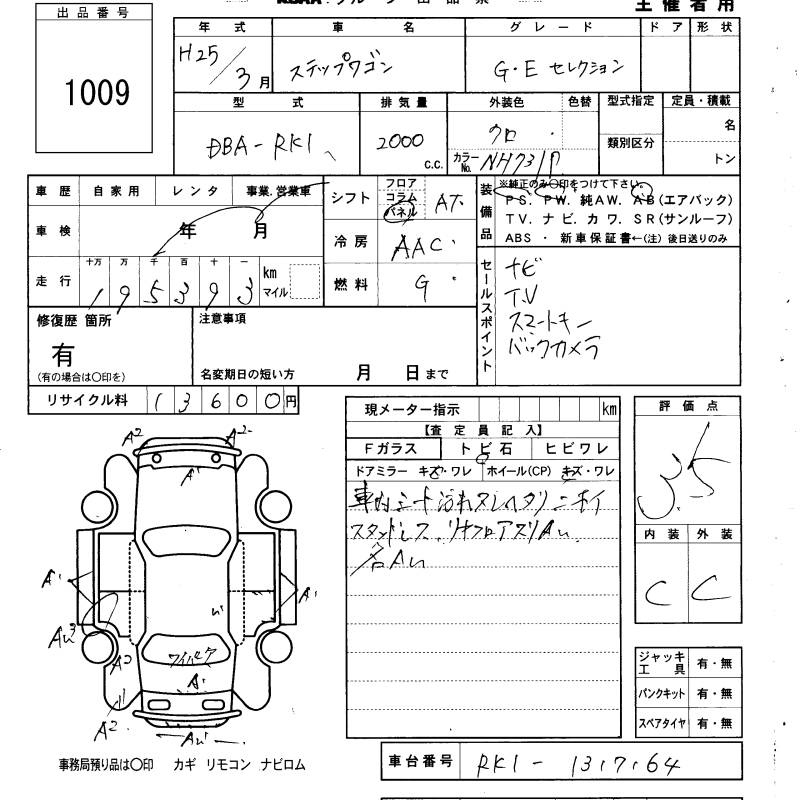 出品番号
1009
主催者用
年式 車名 グレード ドア 形状
H25/3月 ステップワゴン G・E セレクション
型式 排気量 外装色 色替 型式指定 定員・積載
DBA-RK1 2000 c.c. クロ 類別区分 名
カラーNo. NH731P トン
車歴 自家用 レンタ 事業.営業車
シフト フロア コラム パネル AT
車検 年 月
冷房 AAC
走行 十万 万 千 百 十 一 km マイル
195393
燃料 G
装備品 ※純正のみ○印をつけて下さい。
PS. PW. 純AW. AB(エアバック)
TV. ナビ. カワ. SR(サンルーフ)
ABS ・ 新車保証書←(注) 後日送りのみ
セールスポイント
ナビ
T.V
スマートキー
バックカメラ
修復歴 箇所
有
(有の場合は○印を)
注意事項
名変期日の短い方 月 日まで
リサイクル料 13600円
現メーター指示 km
【査定員記入】
Fガラス トビ石 ヒビワレ
ドアミラー キズ・ワレ ホイール(CP) キズ・ワレ
車内シート汚れスレヘタリニホイ
各AU
評価点
3.5
内装 外装
C C
A2 A2
A1
A1 A1
AU3
A2
ワイパーA
A1
A2
AU1
ジャッキ工具 有・無
パンクキット 有・無
スペアタイヤ 有・無
車台番号 RK1-1317164
事務局預り品は○印 カギ リモコン ナビロム